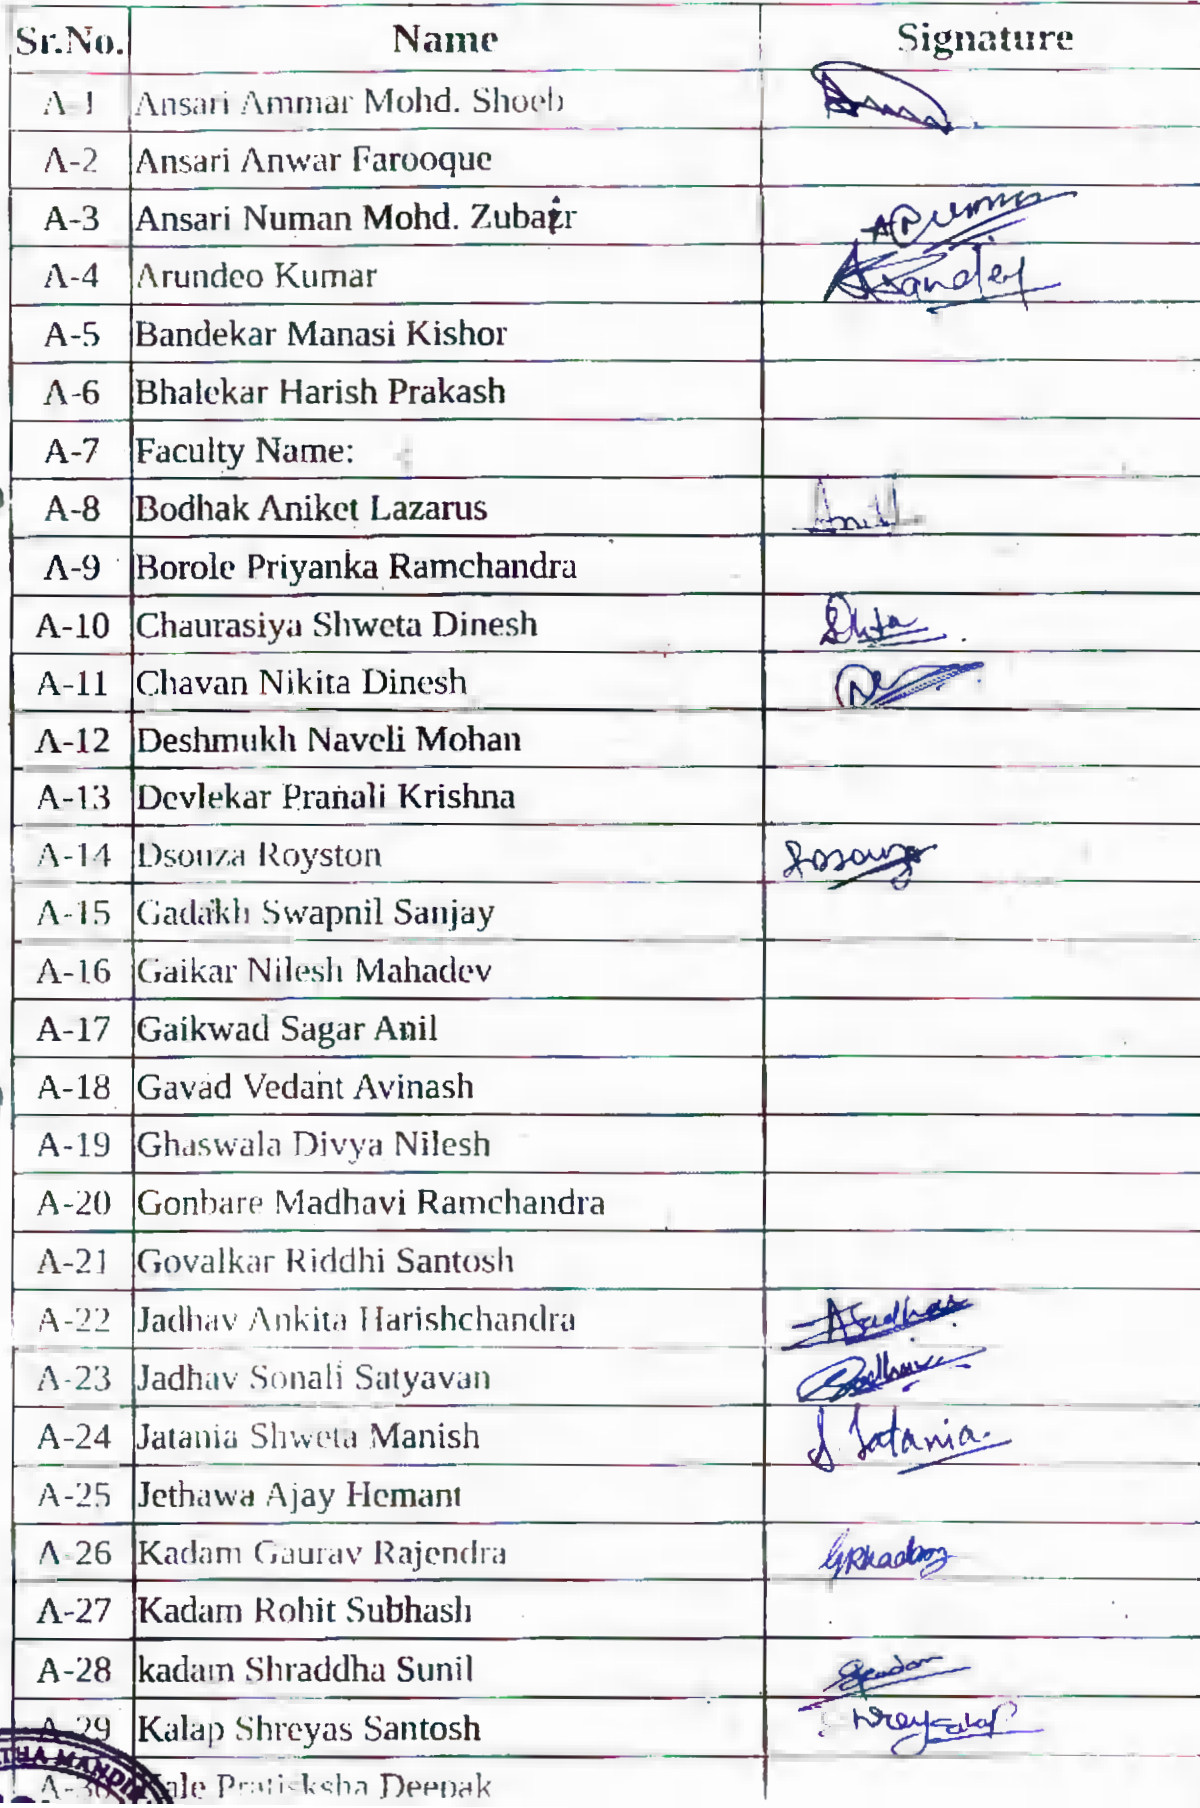 Sr.No. Name Signature
A-1 Ansari Ammar Mohd. Shoeb
A-2 Ansari Anwar Farooque
A-3 Ansari Numan Mohd. Zubair
A-4 Arundeo Kumar
A-5 Bandekar Manasi Kishor
A-6 Bhalekar Harish Prakash
A-7 Faculty Name:
A-8 Bodhak Aniket Lazarus
A-9 Borole Priyanka Ramchandra
A-10 Chaurasiya Shweta Dinesh
A-11 Chavan Nikita Dinesh
A-12 Deshmukh Naveli Mohan
A-13 Devlekar Pranali Krishna
A-14 Dsouza Royston
A-15 Gadakh Swapnil Sanjay
A-16 Gaikar Nilesh Mahadev
A-17 Gaikwad Sagar Anil
A-18 Gavad Vedant Avinash
A-19 Ghaswala Divya Nilesh
A-20 Gonbare Madhavi Ramchandra
A-21 Govalkar Riddhi Santosh
A-22 Jadhav Ankita Harishchandra AJadhav
A-23 Jadhav Sonali Satyavan
A-24 Jatania Shweta Manish S Jatania.
A-25 Jethawa Ajay Hemant
A-26 Kadam Gaurav Rajendra
A-27 Kadam Rohit Subhash
A-28 kadam Shraddha Sunil
A-29 Kalap Shreyas Santosh
A-30 Pratisksha Deepak